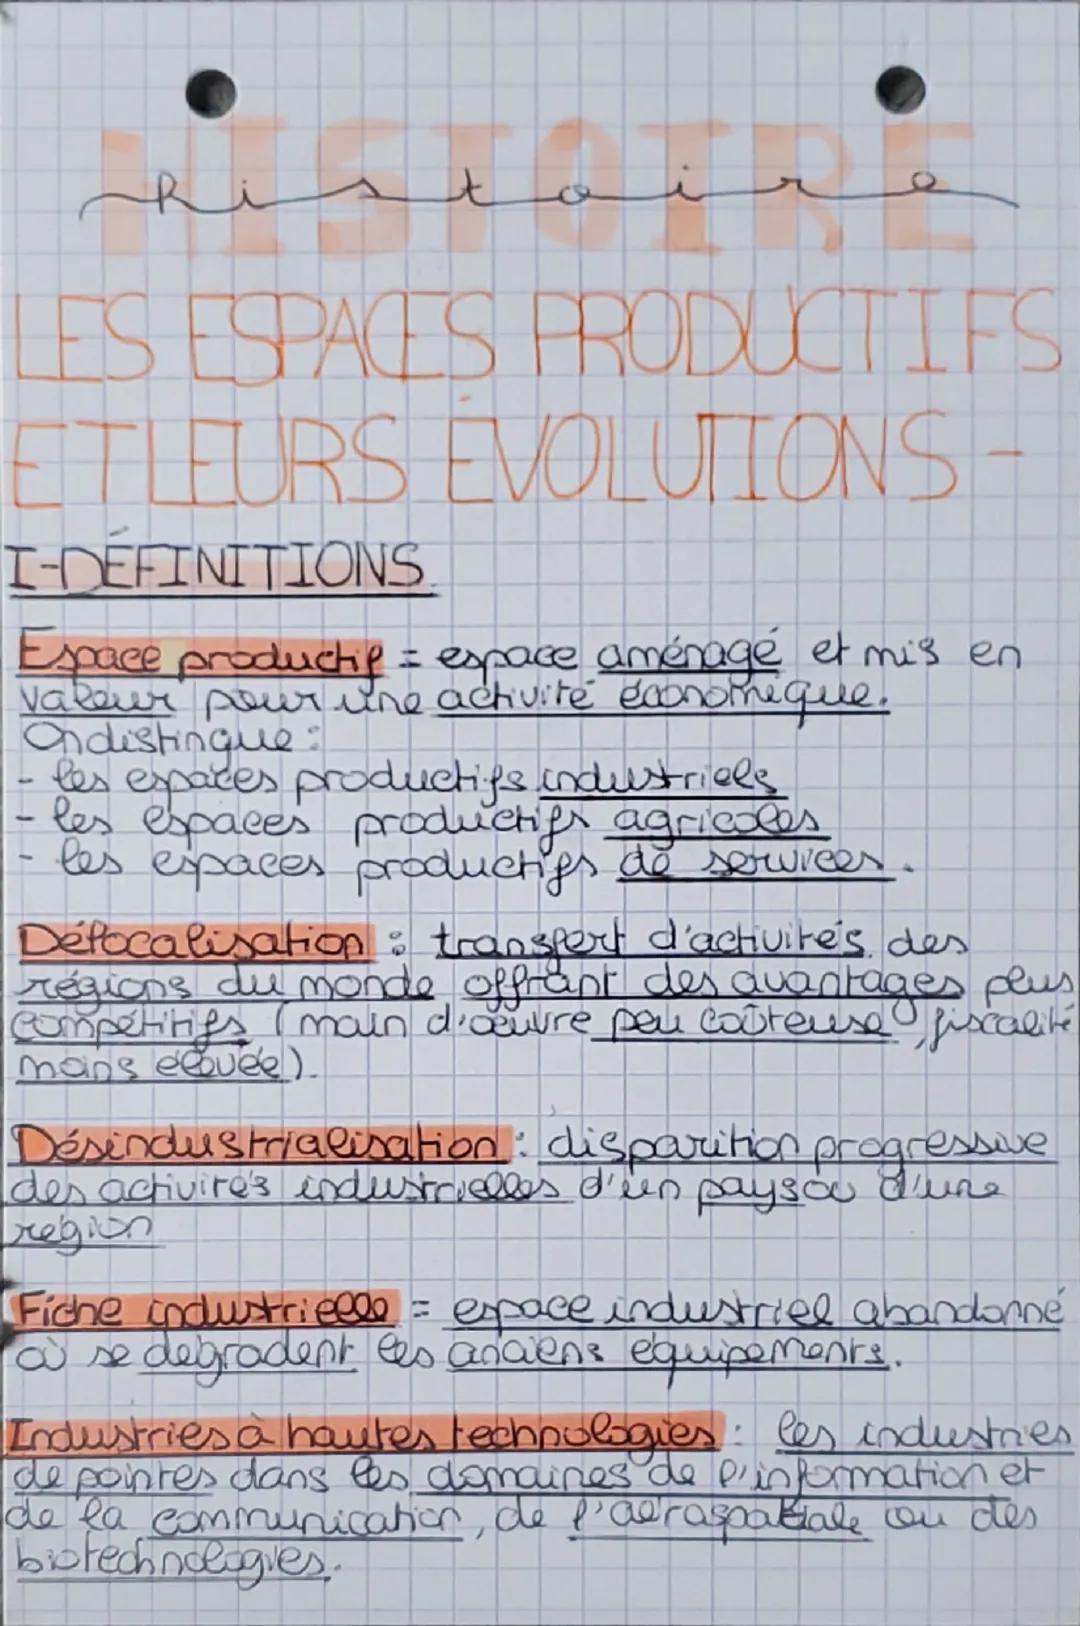 HISTOIRE
histoire
LES ESPACES PRODUCTIFS
ET LEURS ÉVOLUTIONS -
I-DÉFINITIONS
Espace productif = espace aménagé et mis en
valeur pour une activité économique.
On distingue :
- les espaces productifs industriels
- les espaces productifs agricoles
- les espaces productifs de services.
Délocalisation : transfert d'activités des
régions du monde offrant des avantages plus
compétitifs (main d'œuvre peu coûteuse, fiscalité
moins élevée).
Désindustrialisation : disparition progressive
des activités industrielles d'un pays ou d'une
région
Fiche industrielle = espace industriel abandonné
où se dégradent les anciens équipements.
Industries à hautes technologies : les industries
de pointes dans les domaines de l'information et
de la communication, de l'aéraspatiale ou des
biotechnologies.